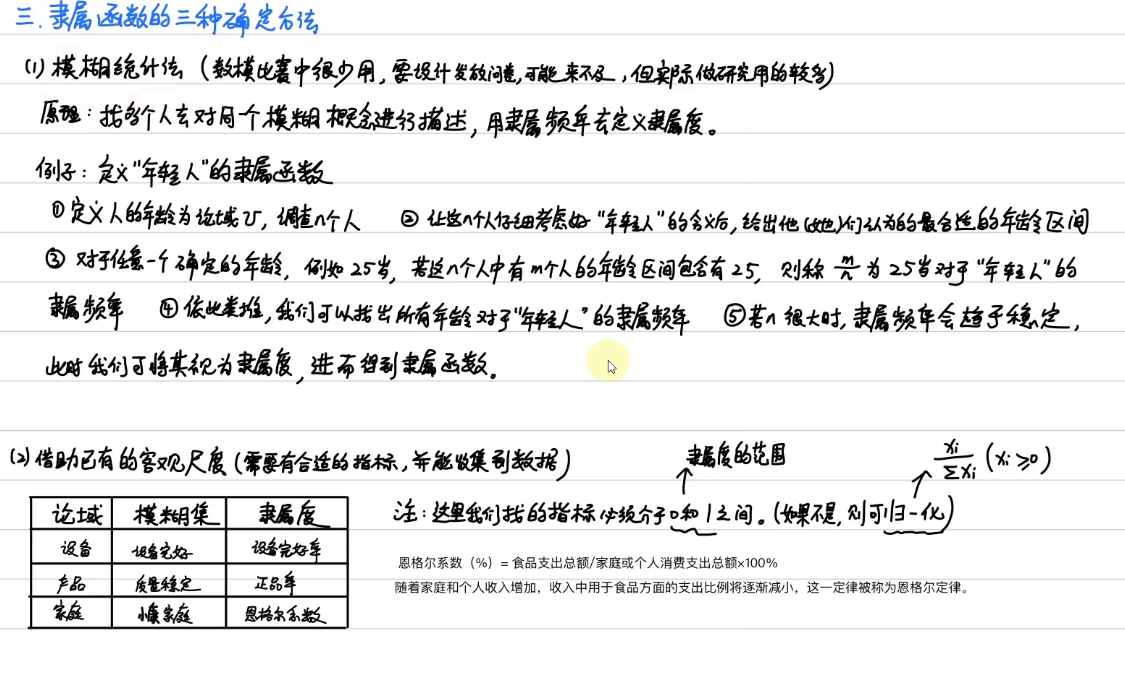 三.隶属函数的三种确定方法
(1) 模糊统计法 (数模比赛中很少用,要设计发放问卷,可能来不及,但实际做研究用的较多)
原理:找多个人去对同一个模糊概念进行描述,用隶属频率去定义隶属度。
例子:定义"年轻人"的隶属函数
① 定义人的年龄为论域U,调查n个人 ② 让这n个人仔细考虑好"年轻人"的含义后,给出他(她)们认为的最合适的年龄区间
③ 对于任意一个确定的年龄,例如25岁,若这n个人中有m个人的年龄区间包含有25,则称 m/n 为25岁对于"年轻人"的
隶属频率 ④ 依此类推,我们可以找出所有年龄对于"年轻人"的隶属频率 ⑤若n很大时,隶属频率会趋于稳定,
此时我们可将其视为隶属度,进而得到隶属函数。
(2) 借助已有的客观尺度(需要有合适的指标,并能收集到数据)
隶属度的范围
xi/Σxi (xi≥0)
注:这里我们找的指标必须介于0和1之间。(如果不是,则可归一化)
论域 模糊集 隶属度
设备 设备完好 设备完好率
产品 质量稳定 正品率
家庭 小康家庭 恩格尔系数
恩格尔系数(%)= 食品支出总额/家庭或个人消费支出总额×100%
随着家庭和个人收入增加,收入中用于食品方面的支出比例将逐渐减小,这一定律被称为恩格尔定律。